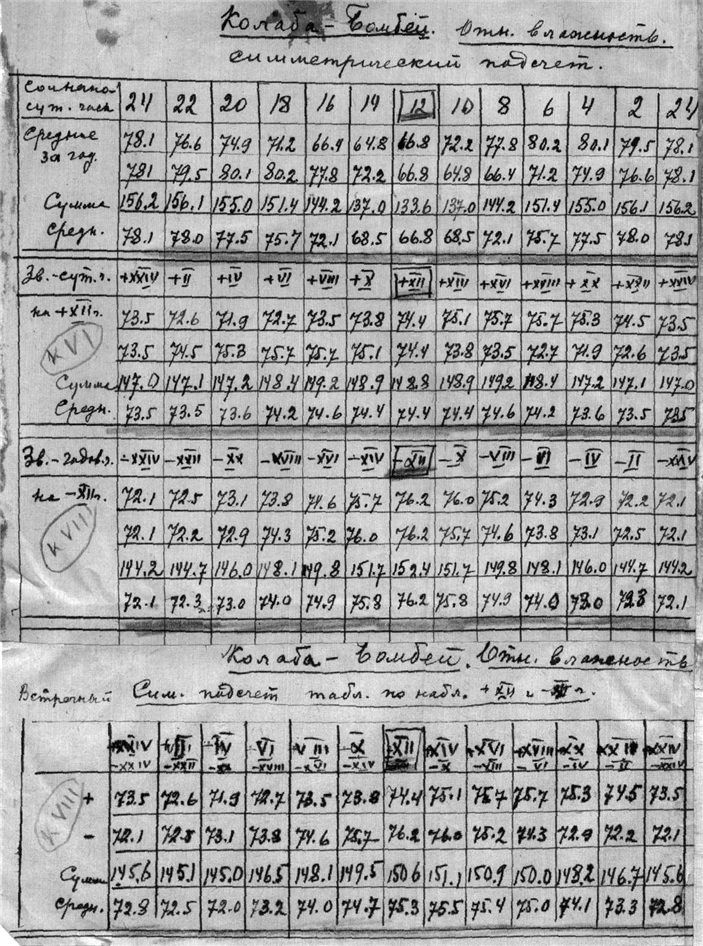 Колаба – Бомбей. Отн. влажность.
симметрический подсчет.
Солнечно сут. часы 24 22 20 18 16 14 12 10 8 6 4 2 24
Средние за год. 78.1 76.6 74.9 71.2 66.4 64.8 66.8 72.2 77.8 80.2 80.1 79.5 78.1
781 79.5 80.1 80.2 77.8 72.2 66.8 64.8 66.4 71.2 74.9 76.6 78.1
Сумма 156.2 156.1 155.0 151.4 144.2 137.0 133.6 137.0 144.2 151.4 155.0 156.1 156.2
Средн. 78.1 78.0 77.5 75.7 72.1 68.5 66.8 68.5 72.1 75.7 77.5 78.0 78.1
Зв.-сут. г. +XXIV +II +IV +VI +VIII +X +XII +XIV +XVI +XVIII +XX +XXII +XXIV
на +XIIг. 73.5 72.6 71.9 72.7 73.5 73.8 74.4 75.1 75.7 75.7 75.3 74.5 73.5
K VI 73.5 74.5 75.3 75.7 75.7 75.1 74.4 73.8 73.5 72.7 71.9 72.6 73.5
Сумма 147.0 147.1 147.2 148.4 149.2 148.9 148.8 148.9 149.2 148.4 147.2 147.1 147.0
Средн. 73.5 73.5 73.6 74.2 74.6 74.4 74.4 74.4 74.6 74.2 73.6 73.5 735
Зв.-годов. г. -XXIV -XXII -XX -XVIII -XVI -XIV -XII -X -VIII -VI -IV -II -XXIV
на -XIIг. 72.1 72.5 73.1 73.8 74.6 75.7 76.2 76.0 75.2 74.3 72.9 72.2 72.1
K VIII 72.1 72.2 72.9 74.3 75.2 76.0 76.2 75.7 74.6 73.8 73.1 72.5 72.1
144.2 144.7 146.0 148.1 149.8 151.7 152.4 151.7 149.8 148.1 146.0 144.7 144.2
72.1 72.3 73.0 74.0 74.9 75.8 76.2 75.8 74.9 74.0 73.0 72.3 72.1
Колаба – Бомбей. Отн. влажность
Встречный Сим. подсчет табл. по набл. +XII и -XII г.
+XXIV +II +IV +VI +VIII +X +XII +XIV +XVI +XVIII +XX +XXII +XXIV
-XXIV -XXII -XX -XVIII -XVI -XIV -XII -X -VIII -VI -IV -II -XXIV
K VIII + 73.5 72.6 71.9 72.7 73.5 73.8 74.4 75.1 75.7 75.7 75.3 74.5 73.5
- 72.1 72.5 73.1 73.8 74.6 75.7 76.2 76.0 75.2 74.3 72.9 72.2 72.1
Сумма 145.6 145.1 145.0 146.5 148.1 149.5 150.6 151.1 150.9 150.0 148.2 146.7 145.6
Средн. 72.8 72.5 72.0 73.2 74.0 74.7 75.3 75.5 75.4 75.0 74.1 73.3 72.8